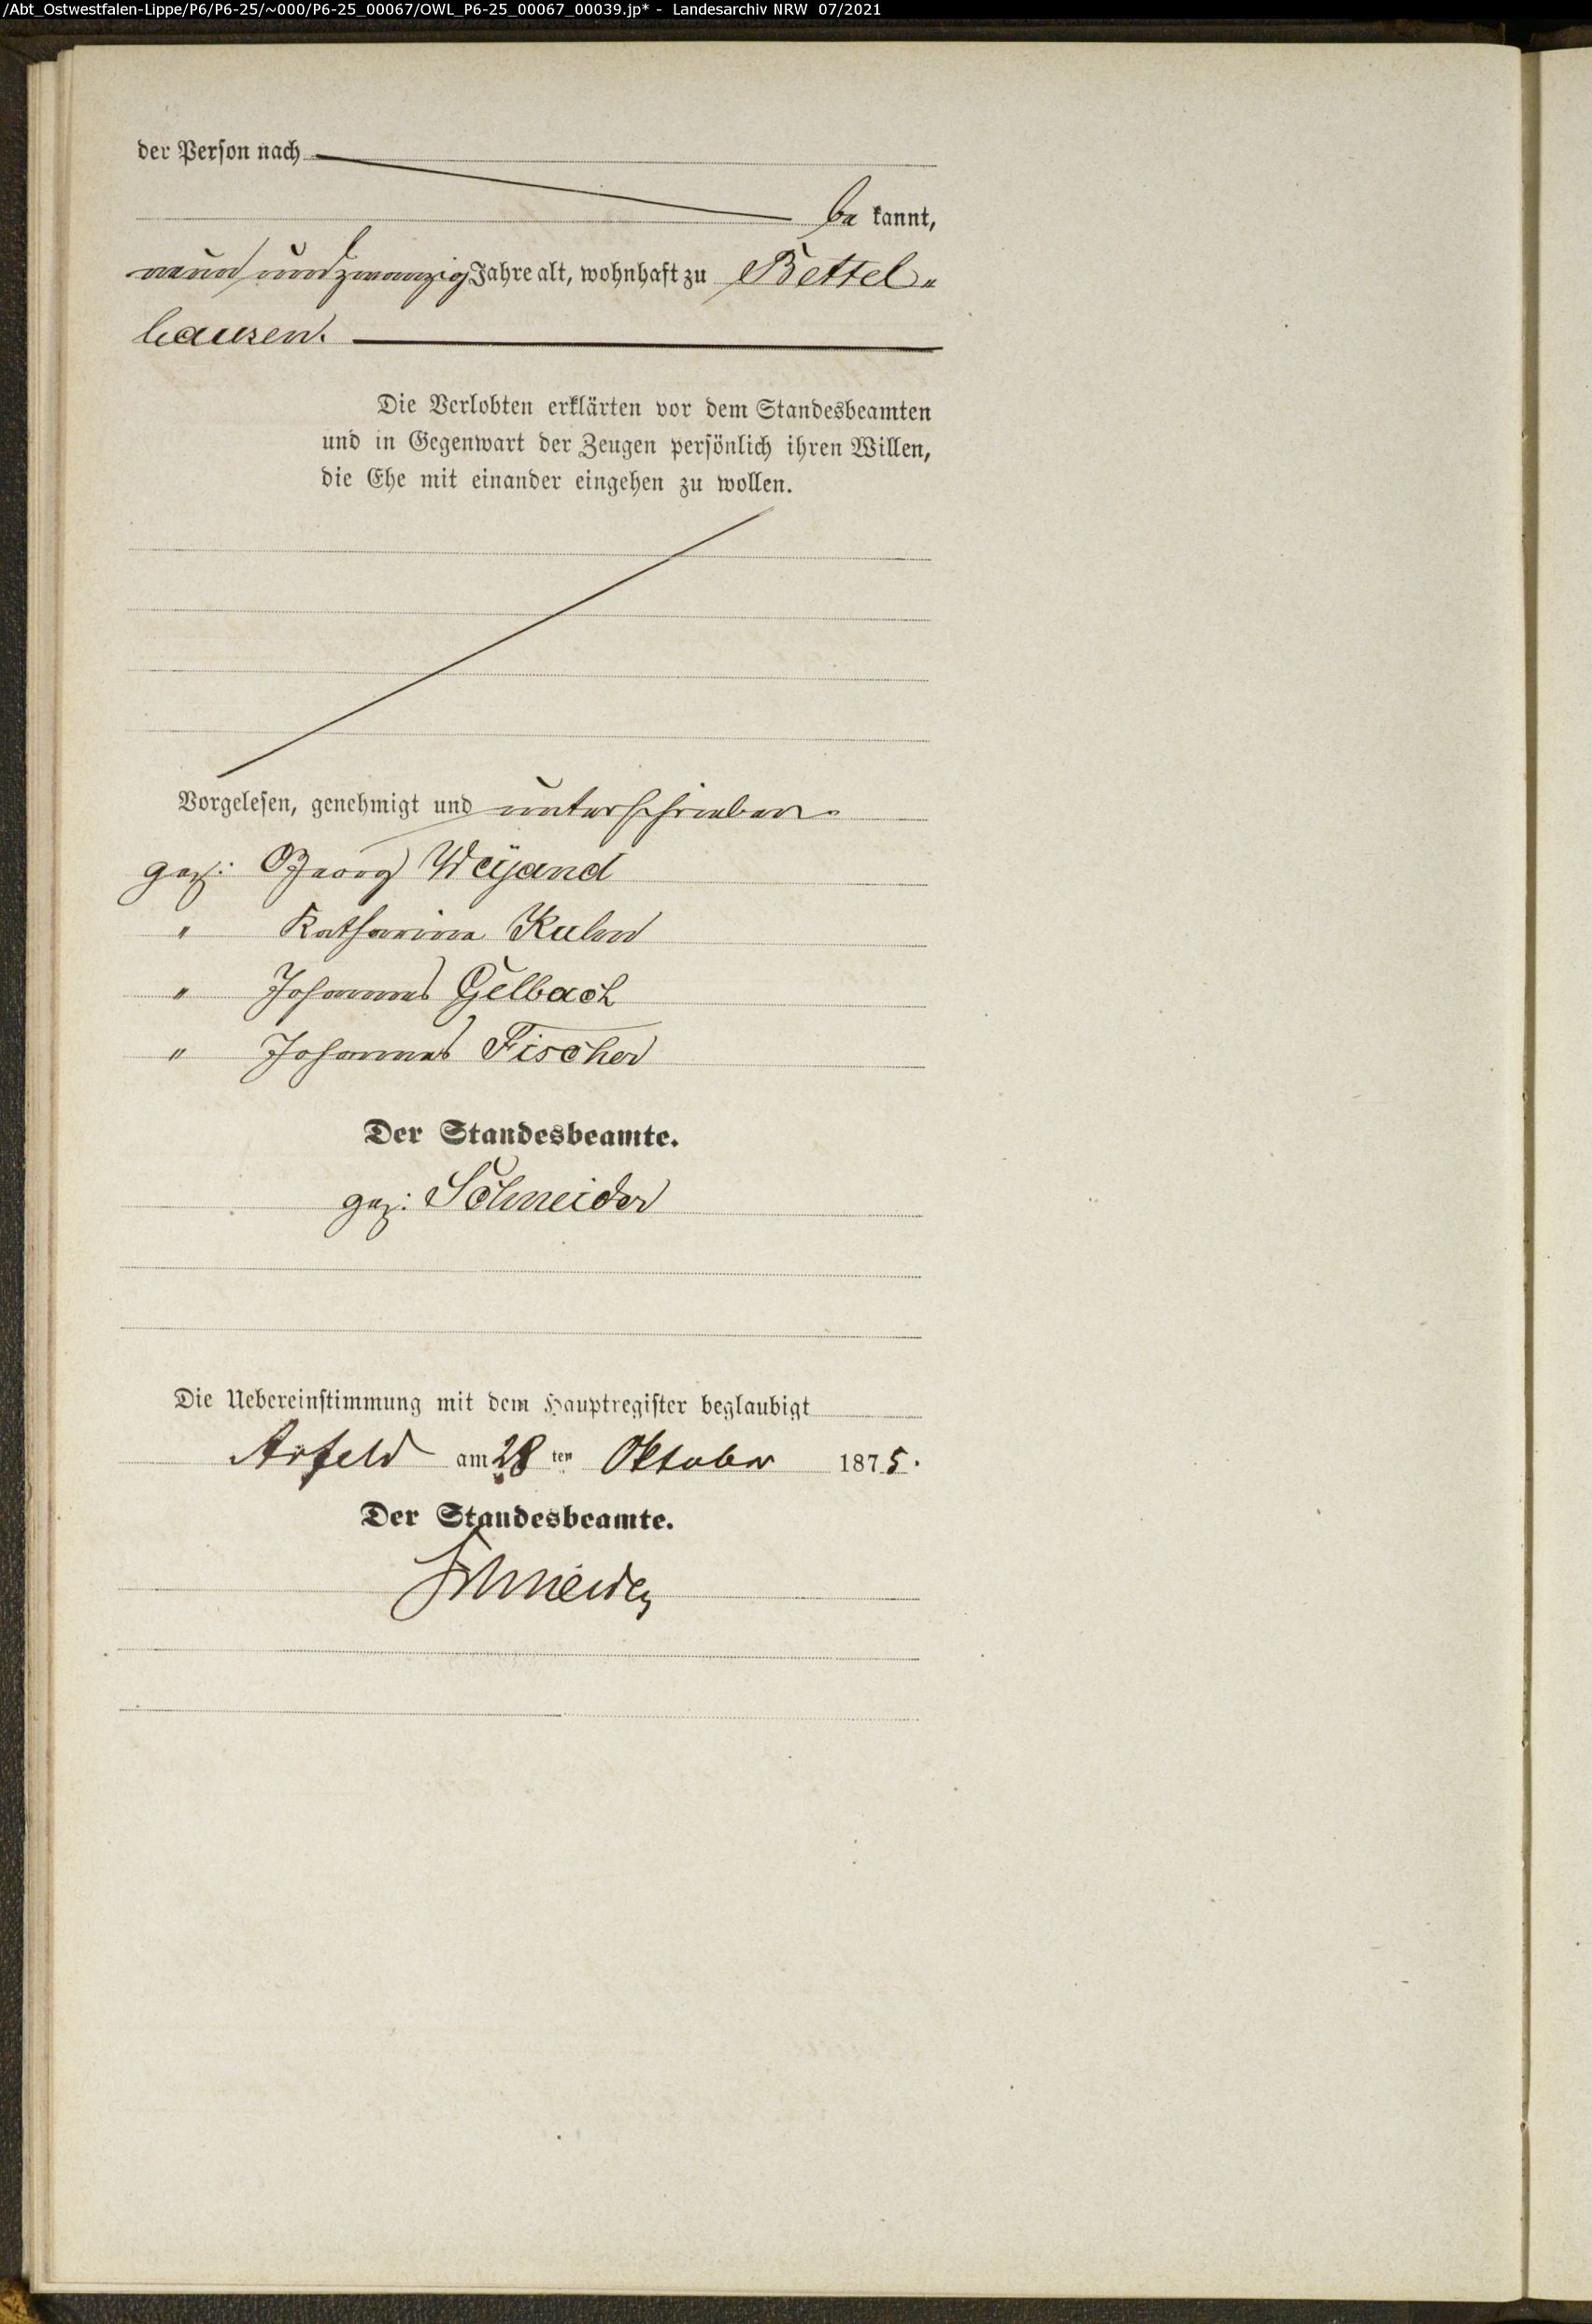 /Abt_Ostwestfalen-Lippe/P6/P6-25/~000/P6-25_00067/OWL_P6-25_00067_00039.jp* - Landesarchiv NRW 07/2021
der Person nach
be kannt,
neun und zwanzig Jahre alt, wohnhaft zu Bettel-
hausen.
Die Verlobten erklärten vor dem Standesbeamten
und in Gegenwart der Zeugen persönlich ihren Willen,
die Ehe mit einander eingehen zu wollen.
Vorgelesen, genehmigt und unterschrieben.
gez: Georg Weÿand
" Katharina Kuhn
" Johannes Gelbach
" Johannes Fischer
Der Standesbeamte.
gez: Schneider
Die Uebereinstimmung mit dem Hauptregister beglaubigt
Arfeld am 28 ten Oktober 1875.
Der Standesbeamte.
Schneider